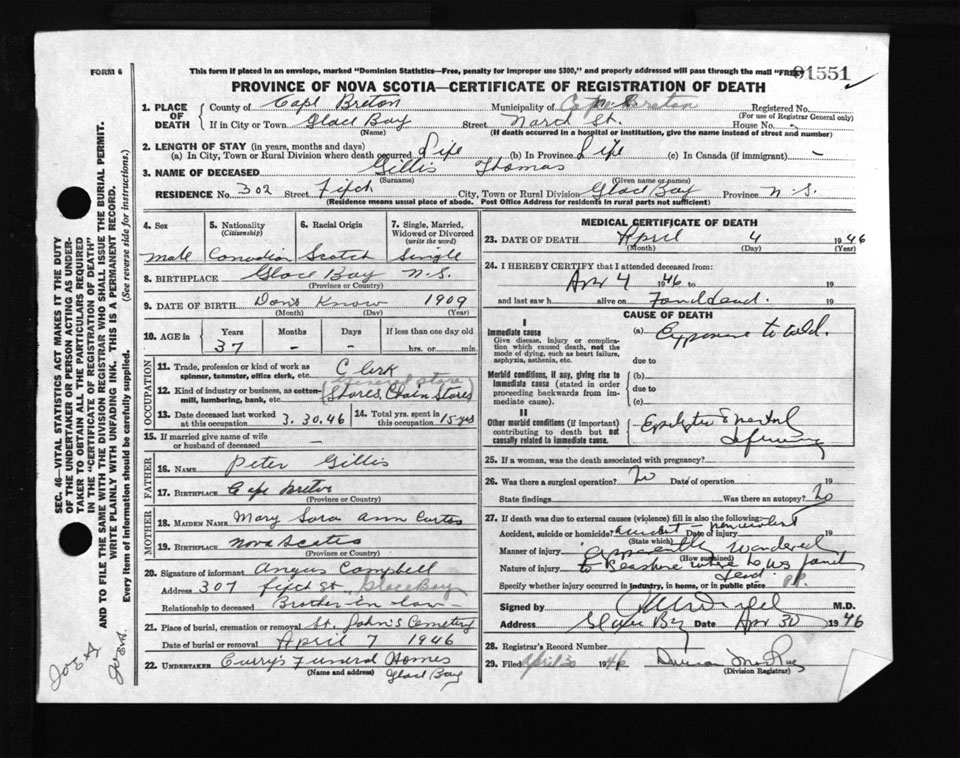 FORM 6
This form if placed in an envelope, marked "Dominion Statistics—Free, penalty for improper use $300," and properly addressed will pass through the mail "FREE"
91551
PROVINCE OF NOVA SCOTIA—CERTIFICATE OF REGISTRATION OF DEATH
1. PLACE OF DEATH County of Cape Breton Municipality of Cape Breton Registered No.
(For use of Registrar General only)
If in City or Town Glace Bay Street St. House No. -
(Name) (If death occurred in a hospital or institution, give the name instead of street and number)
2. LENGTH OF STAY (in years, months and days)
(a) In City, Town or Rural Division where death occurred Life (b) In Province Life (c) In Canada (if immigrant) -
3. NAME OF DECEASED Gillis Thomas
(Surname) (Given name or names)
RESIDENCE No. 302 Street Fifth City, Town or Rural Division Glace Bay Province N.S.
(Residence means usual place of abode. Post Office Address for residents in rural parts not sufficient)
4. Sex 5. Nationality (Citizenship) 6. Racial Origin 7. Single, Married, Widowed or Divorced (write the word)
Male Canadian Scotch Single
8. BIRTHPLACE Glace Bay N.S.
(Province or Country)
9. DATE OF BIRTH Dont Know 1909
(Month) (Day) (Year)
10. AGE in Years Months Days If less than one day old
37 - - hrs. or min.
OCCUPATION
11. Trade, profession or kind of work as spinner, teamster, office clerk, etc. Clerk
General Store
12. Kind of industry or business, as cotton-mill, lumbering, bank, etc. Stores, Chain Stores
13. Date deceased last worked at this occupation 3.30.46 14. Total yrs. spent in this occupation 15 yrs
15. If married give name of wife or husband of deceased -
FATHER
16. NAME Peter Gillis
17. BIRTHPLACE Cape Breton
(Province or Country)
MOTHER
18. MAIDEN NAME Mary Sara Ann Curtis
19. BIRTHPLACE Nova Scotia
(Province or Country)
20. Signature of informant Angus Campbell
Address 307 Fifth St. Glace Bay
Relationship to deceased Brother-in-law
21. Place of burial, cremation or removal St. John's Cemetery
Date of burial or removal April 7 1946
22. UNDERTAKER Curry's Funeral Homes
(Name and address) Glace Bay
MEDICAL CERTIFICATE OF DEATH
23. DATE OF DEATH April 4 1946
(Month) (Day) (Year)
24. I HEREBY CERTIFY that I attended deceased from:
Apr 4 1946 to 19
and last saw h alive on Found dead. 19
CAUSE OF DEATH
I
Immediate cause
Give disease, injury or complication which caused death, not the mode of dying, such as heart failure, asphyxia, asthenia, etc.
(a) Exposure to cold.
due to
Morbid conditions, if any, giving rise to immediate cause (stated in order proceeding backwards from immediate cause).
(b)
due to
(c)
II
Other morbid conditions (if important) contributing to death but not causally related to immediate cause.
Epileptic & mental
25. If a woman, was the death associated with pregnancy?
26. Was there a surgical operation? No Date of operation 19
State findings Was there an autopsy? No
27. If death was due to external causes (violence) fill in also the following:
Accident, suicide or homicide? Accident Date of injury 19
(State which)
Manner of injury Apparently wandered
(How sustained)
Nature of injury to seashore where he was found
dead.
Specify whether injury occurred in industry, in home, or in public place P.P.
Signed by M.D.
Address Glace Bay Date Apr 30 1946
28. Registrar's Record Number
29. Filed April 30 1946
(Division Registrar)
SEC. 46—VITAL STATISTICS ACT MAKES IT THE DUTY
OF THE UNDERTAKER OR PERSON ACTING AS UNDER-
TAKER TO OBTAIN ALL THE PARTICULARS REQUIRED
IN THE "CERTIFICATE OF REGISTRATION OF DEATH"
AND TO FILE THE SAME WITH THE DIVISION REGISTRAR WHO SHALL ISSUE THE BURIAL PERMIT.
WRITE PLAINLY WITH UNFADING INK. THIS IS A PERMANENT RECORD.
Every item of information should be carefully supplied. (See reverse side for instructions.)